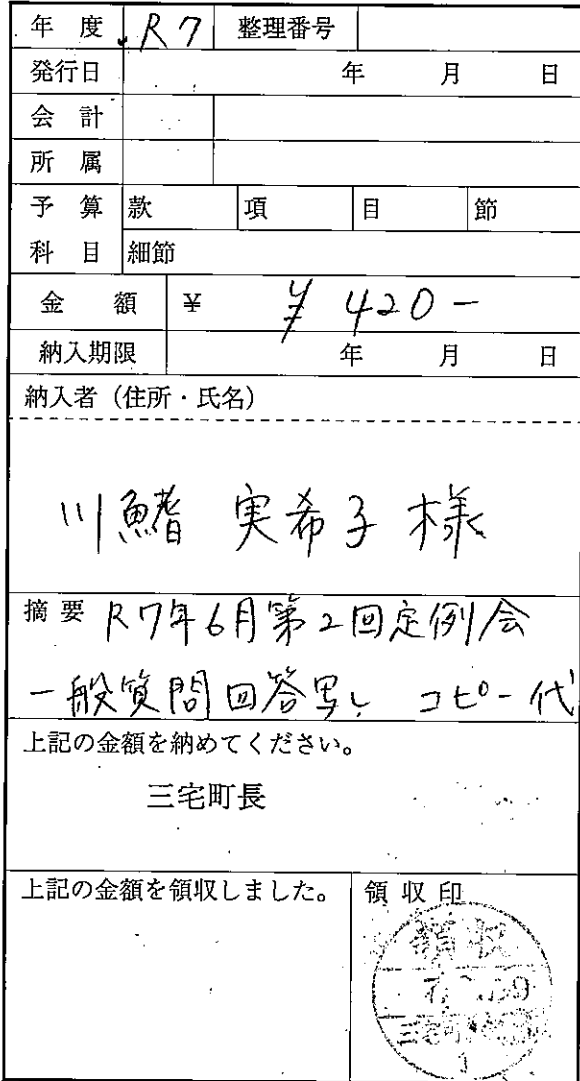 年 度 R7 整理番号
発行日 年 月 日
会 計
所 属
予 算 款 項 目 節
科 目 細節
金 額 ¥ ¥420-
納入期限 年 月 日
納入者（住所・氏名）
川鰭 実希子 様
摘 要 R7年6月第2回定例会
一般質問回答写し コピー代
上記の金額を納めてください。
三宅町長
上記の金額を領収しました。 領 収 印
領収
三宅町